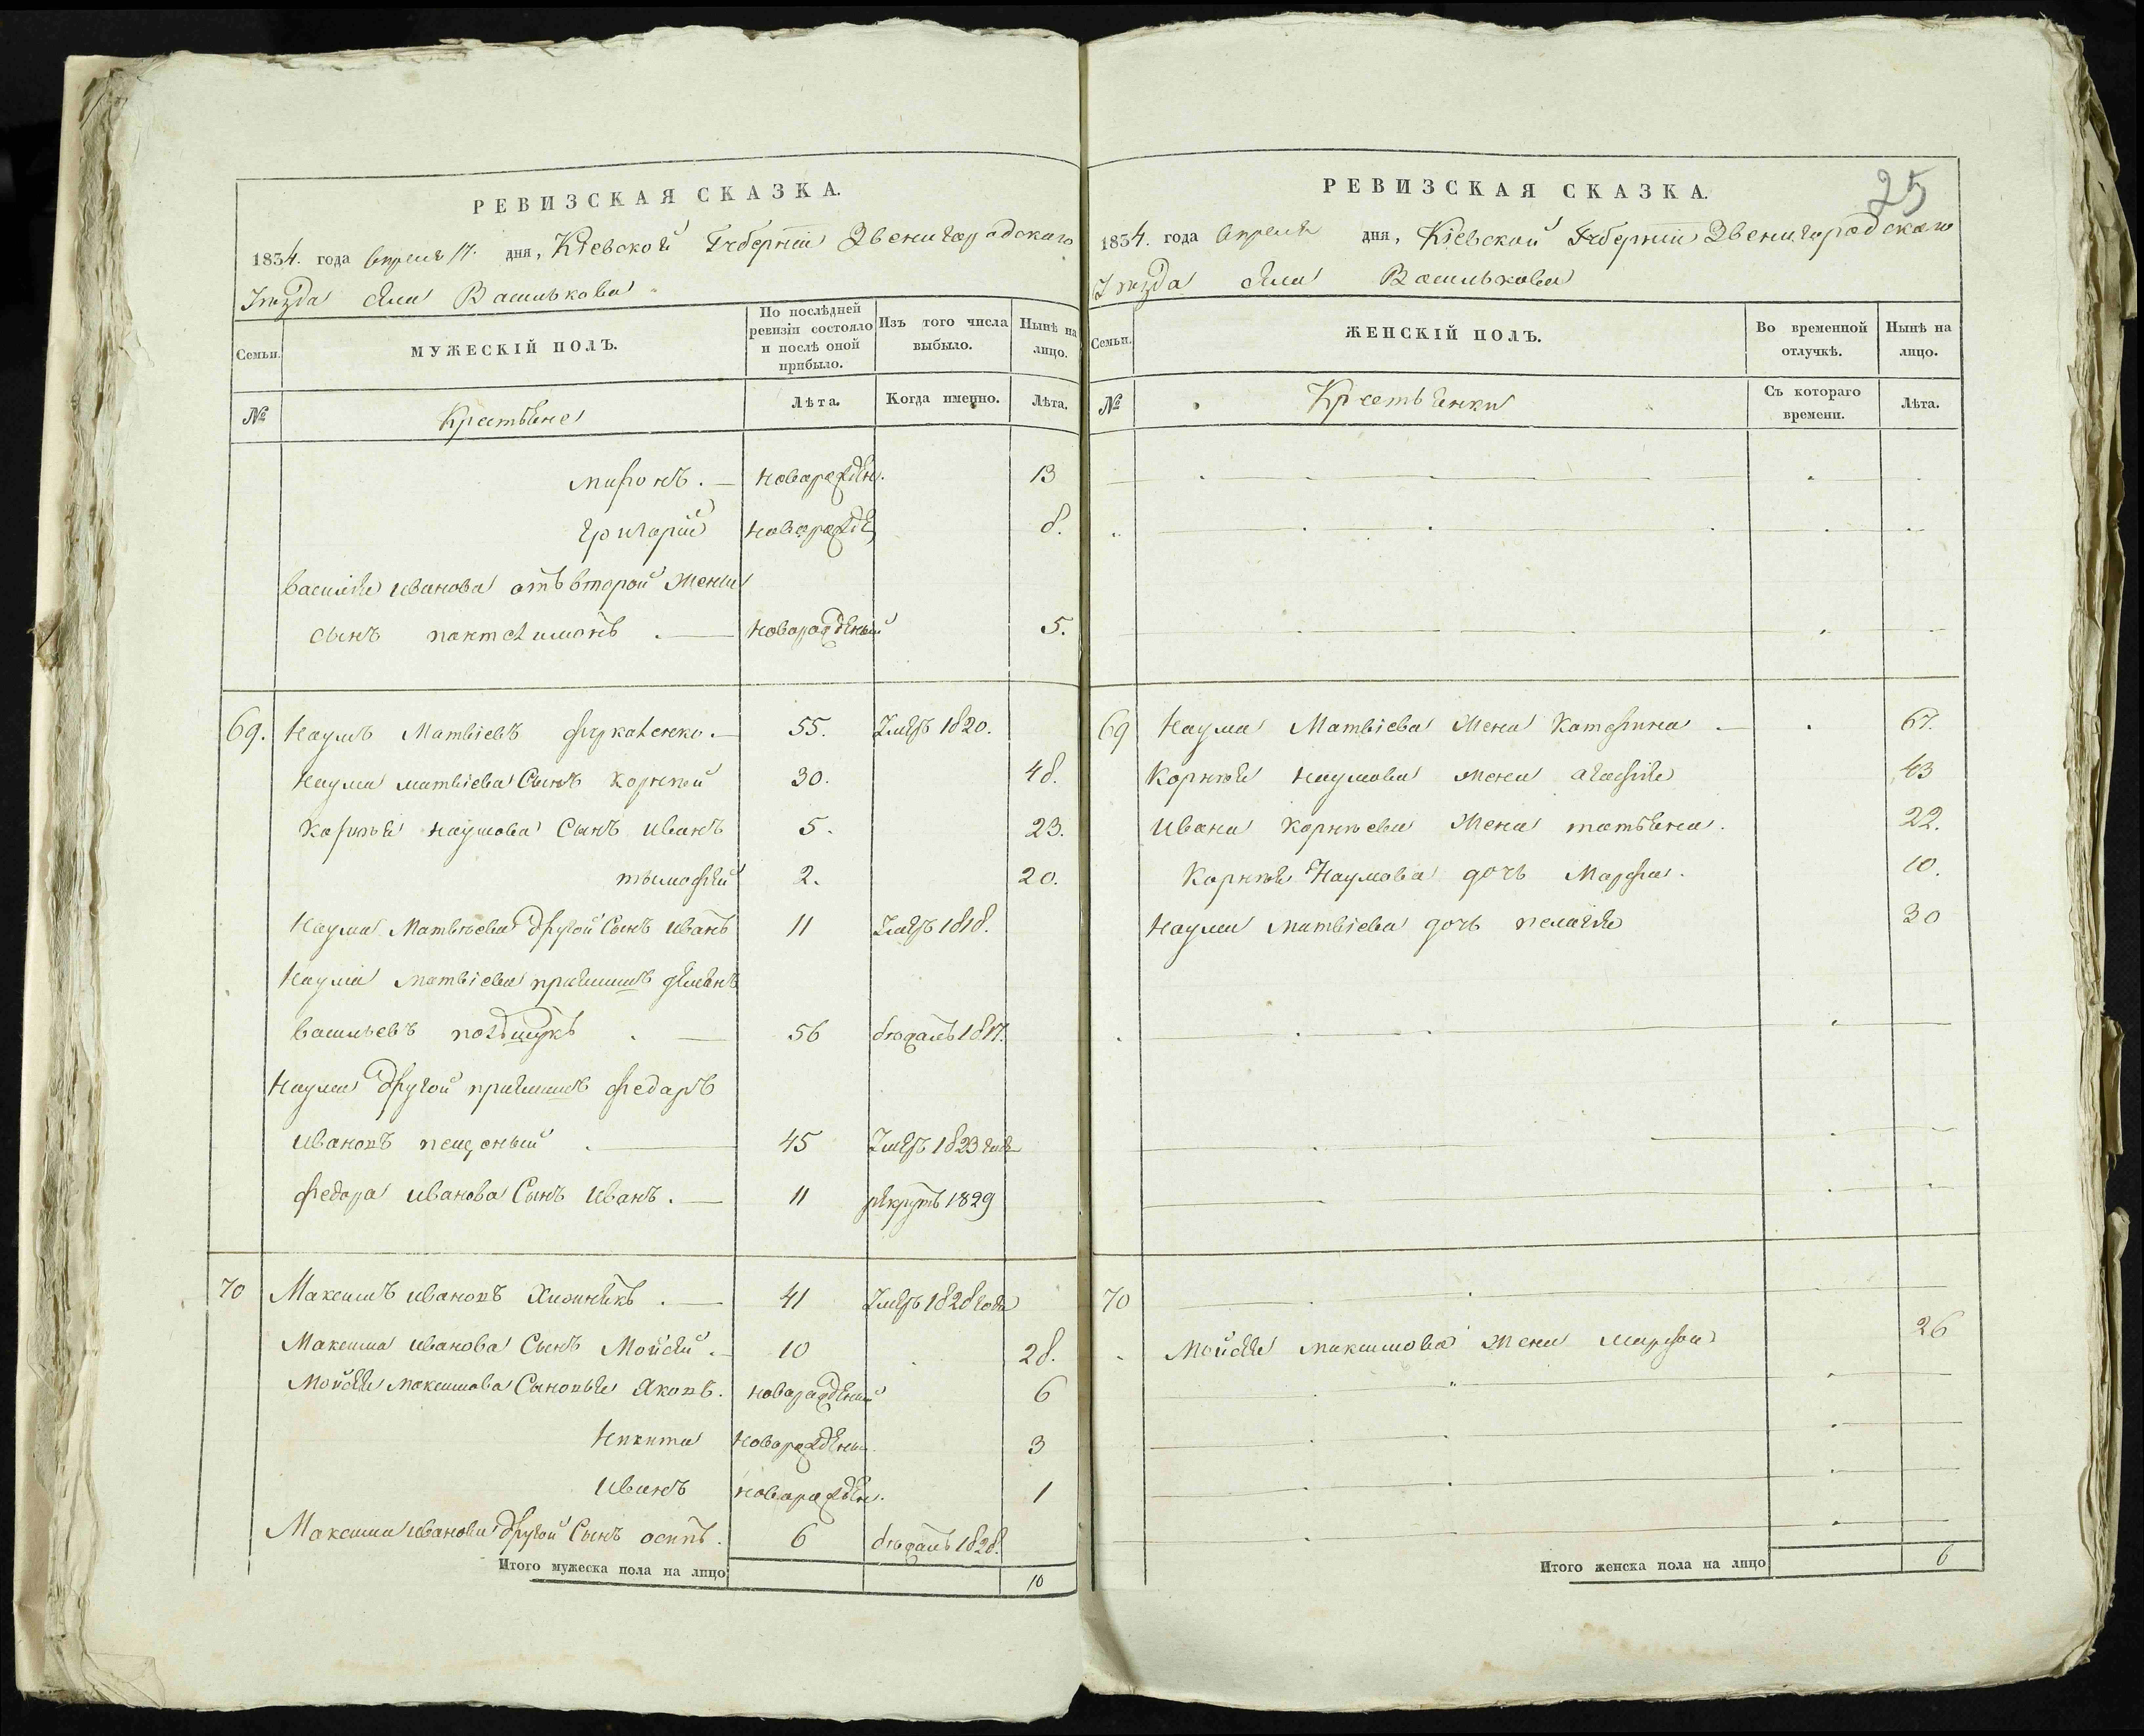 РЕВИЗСКАЯ СКАЗКА.
1834. года Апреля 17. дня, Кіевской Губерніи Звенигородскаго
Уезда Села Василькова
Семьи. МУЖЕСКІЙ ПОЛЪ. По послѣдней ревизіи состояло и послѣ оной прибыло. Изъ того числа выбыло. Нынѣ на лицо.
№ Крестьяне Лѣта. Когда именно. Лѣта.
Миронъ. новорожден. 13
Григорій новорожде 8.
Василія Иванова отъ второй жены
сынъ пантелимонъ новорожденый 5.
69. Наумъ Матвіевъ 55. Умеръ 1820.
Наума матвіева Сынъ корній 30. 48.
Корнѣя наумова Сынъ иванъ 5. 23.
тымофей 2. 20.
Наума Матвѣева другой Сынъ иванъ 11 Умеръ 1818.
Наума матвіева приймишъ
васильевъ 56 1817.
Наума другой приймишъ федаръ
ивановъ 45 Умеръ 1823 года
федора иванова Сынъ иванъ. 11 рекрутъ 1829
70 Максимъ ивановъ 41 Умеръ 1828 года
Максима иванова Сынъ Мойсей. 10 28.
Мойсея максимова Сыновья Яковъ. новорожденый 6
Никита новорожденый. 3
иванъ новорожден. 1
Максима иванова другой Сынъ осипъ. 6 1828.
Итого мужеска пола на лицо 10
25
РЕВИЗСКАЯ СКАЗКА.
1834. года Апреля дня, Кіевской Губерніи Звенигородскаго
Уезда Села Василькова
Семьи. ЖЕНСКІЙ ПОЛЪ. Во временной отлучкѣ. Нынѣ на лицо.
№ Крестьянки Съ котораго времени. Лѣта.
69 Наума Матвіева жена Катерина 67.
Корнѣя наумова жена агафія 43
Ивана корнѣева жена татьяна. 22.
Корнѣя Наумова дочь Марфа. 10.
Наума матвіева дочь пелагія 30
70
Мойсея максимова жена марфа 26
Итого женска пола на лицо 6